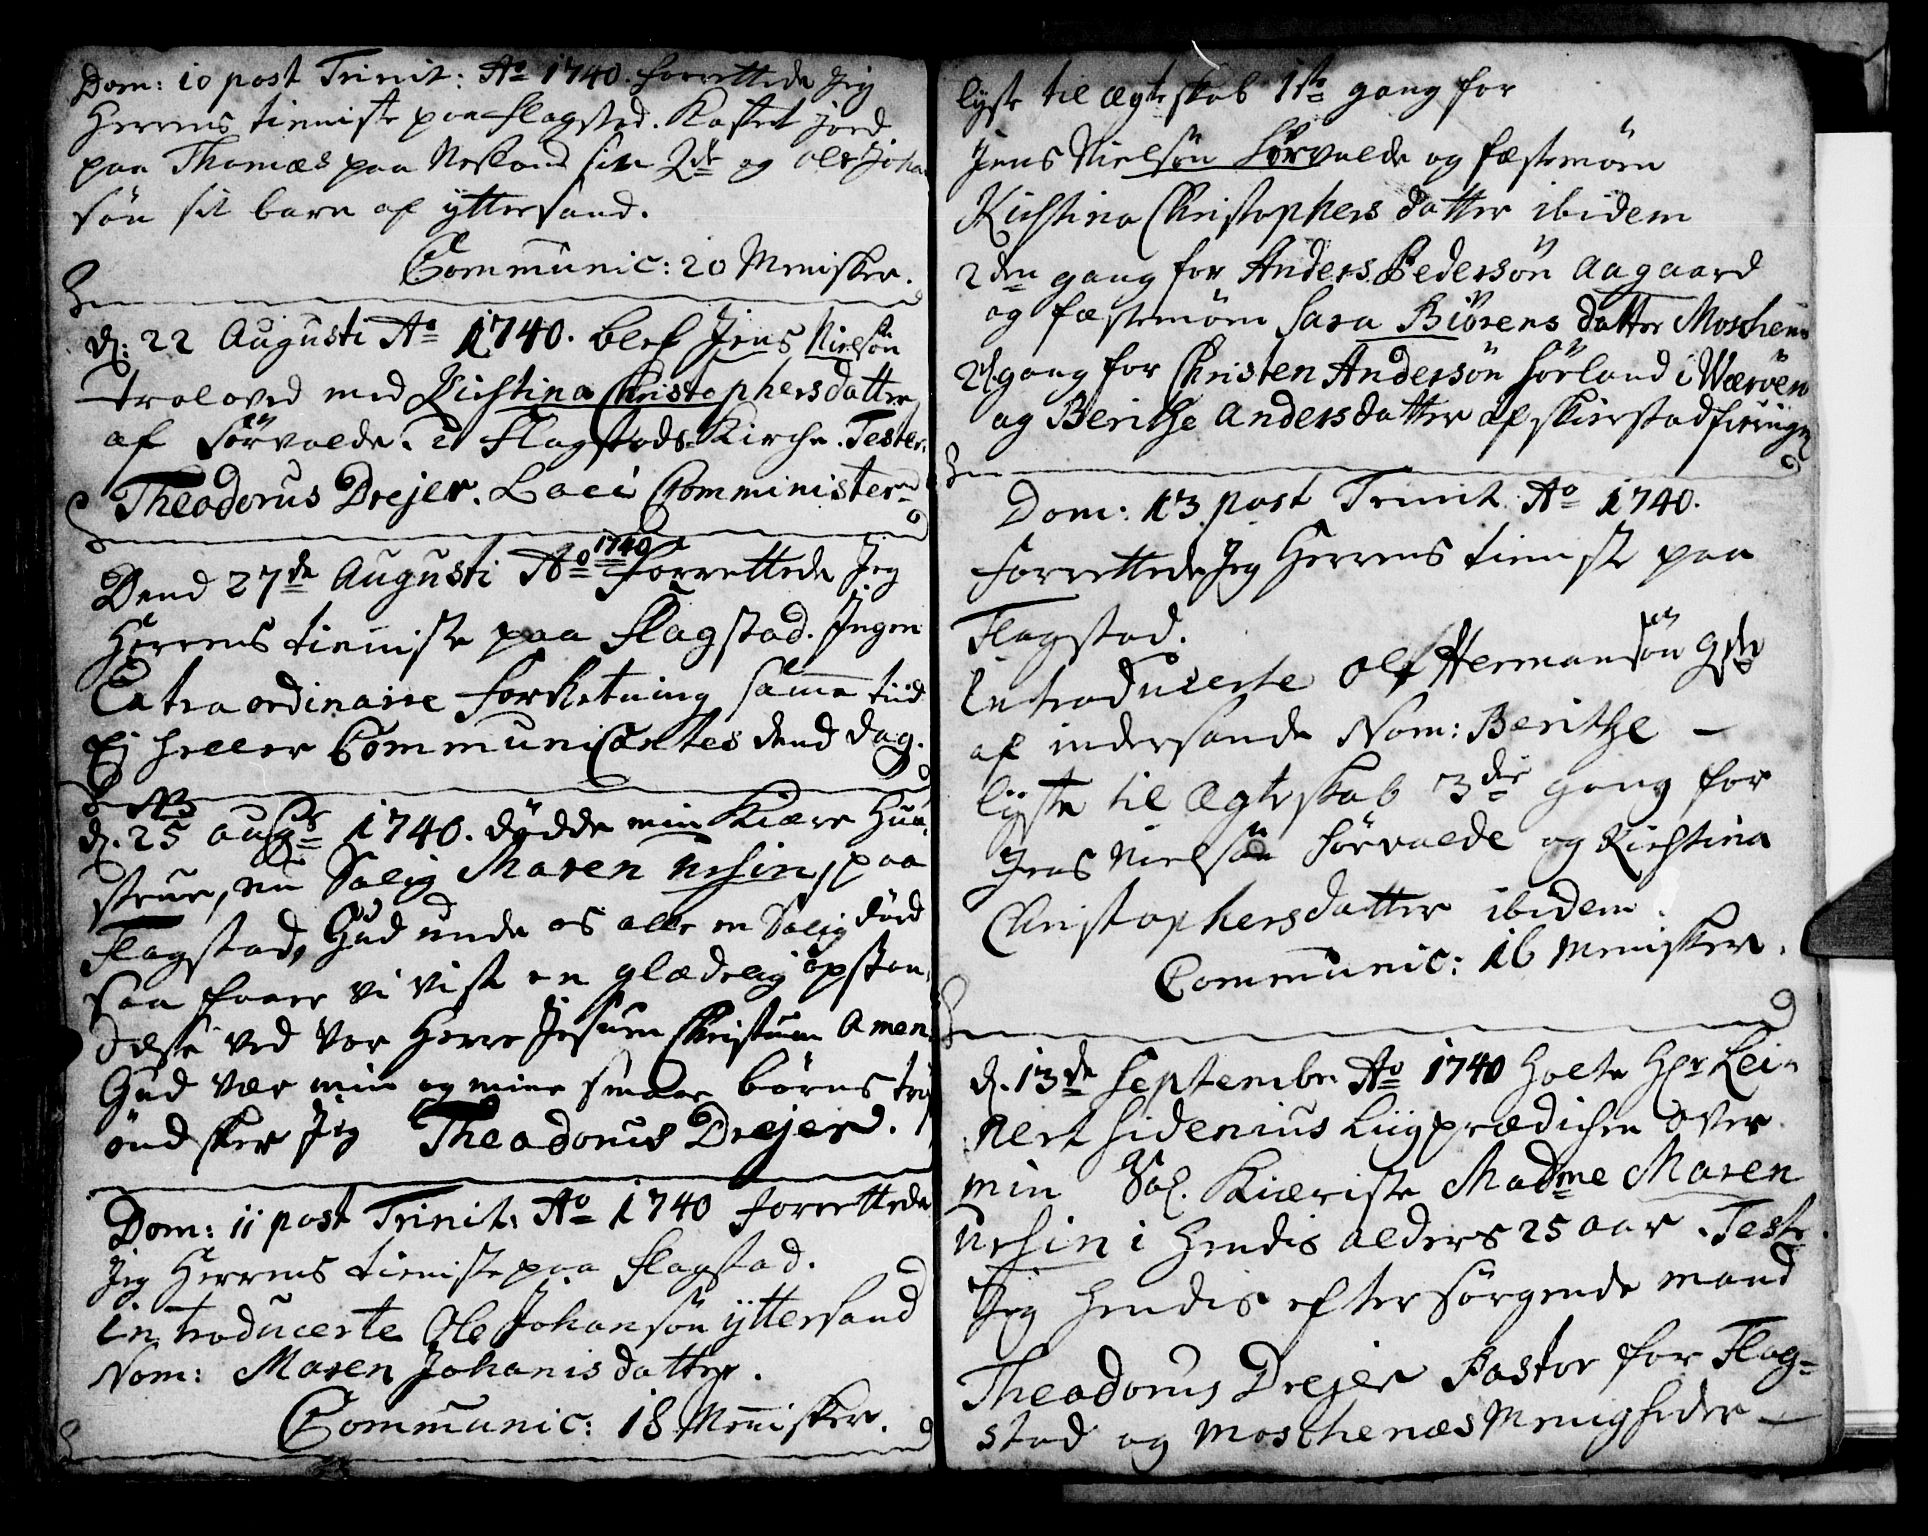 Dom: 10 post Trinit: Ao 1740. forrettede Jeg
Herrens tieniste paa Flagstad. Kastet Jord
paa Thomæs paa Nesland sin 2de og Ole Joha
søn sit barn af yttersand.
Communic: 20 Menisker.
d: 22 Augusti Ao 1740. blef Jens Nielsøn
troloved med Kirstina Christophersdatter
af Sørvalde. i Flagstads Kirche. Tester.
Theodorus Drejer. Loci Comminister
Dend 27de Augusti Ao 1740 forrettede Jeg
Herrens tieniste paa Flagstad. Ingen
Extraordinaire forretning samme tiid
Ej heller Communicantes dend dag.
NB
d. 25 Aug 1740. dødde min Kiære Huu
strue, nu Salig Maren Ursin, paa
Flagstad, Gud unde os alle en Salig død
saa faaer vi vist en glædelig opstan,
delse ved vor Herre Jesum Christum Amen.
Gud vær min og mine smaae børns trøst
ønsker Jeg Theodorus Drejer.
Dom: 11 post Trinit: Ao 1740 forrettede
Jeg Herrens tieniste paa Flagstad.
Introducerte Ole Johansøn yttersand
Nom: Maren Johanisdatter.
Communic: 18 Menisker.
lyste til Ægteskab 1ste gang for
Jens Nielsøn Sørvalde og fæstemøen
Kirstina Christophers datter ibidem
2den gang for Anders Pedersøn Aagaard
og fæstemøen Sara Biørens datter Moschenes
2d gang for Christen Andersøn Sørland i Werøen
og Berithe Andersdatter af skierstadfieringen
Dom: 13 post Trinit. Ao 1740.
forrettede Jeg Herrens tieniste paa
Flagstad.
Introducerte Ole Hermansøn
af indersande Nom: Berithe —
lyste til Ægteskab 3die gang for
Jens Nielsøn Sørvalde og Kirstina
Christophersdatter ibidem.
Communic: 16 menisker.
d. 13de Septembr. Ao 1740 holte Hr Lei-
nert Sidenius Liigprædichen over
min Sal. Kiæriste Madme Maren
Ursin i hendis alders 25 aar. Test
Jeg hendis efter sørgende mand
Theodorus Drejer Pastor for Flag-
stad og Moschenæs Menigheder —